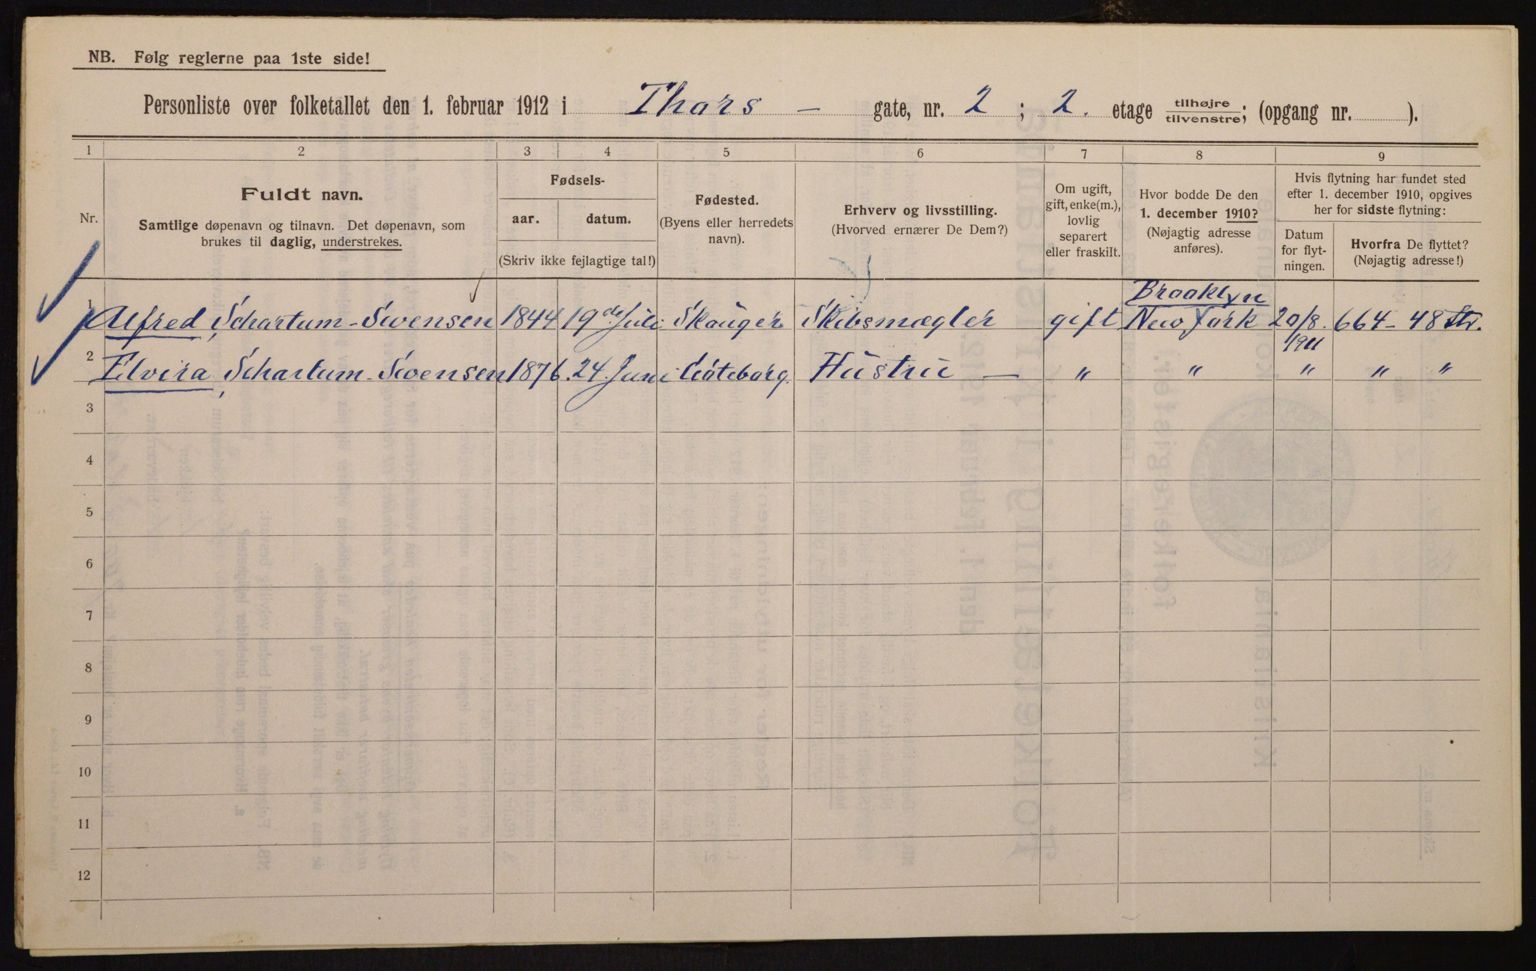 NB. Følg reglerne paa 1ste side!
Personliste over folketallet den 1. februar 1912 i Thors – gate, nr. 2 ; 2. etage tilhøjre tilvenstre; (opgang nr. ).
1 2 3 4 5 6 7 8 9
Nr.
Fuldt navn.
Samtlige døpenavn og tilnavn. Det døpenavn, som
brukes til daglig, understrekes.
Fødsels-
aar. datum.
(Skriv ikke fejlagtige tal!)
Fødested.
(Byens eller herredets
navn).
Erhverv og livsstilling.
(Hvorved ernærer De Dem?)
Om ugift,
gift, enke(m.),
lovlig
separert
eller fraskilt.
Hvor bodde De den
1. december 1910?
(Nøjagtig adresse
anføres).
Hvis flytning har fundet sted
efter 1. december 1910, opgives
her for sidste flytning:
Datum
for flyt-
ningen.
Hvorfra De flyttet?
(Nøjagtig adresse!)
Brooklyn
1 Alfred Schartum-Swensen 1844 19de Juli Skauger Skibsmægler gift New York 20/8 664 – 48 Str.
1911
2 Elvira Schartum-Swensen 1876. 24. Juni Göteborg. Hustru — „ „ „ „ „
3
4
5
6
7
8
9
10
11
12